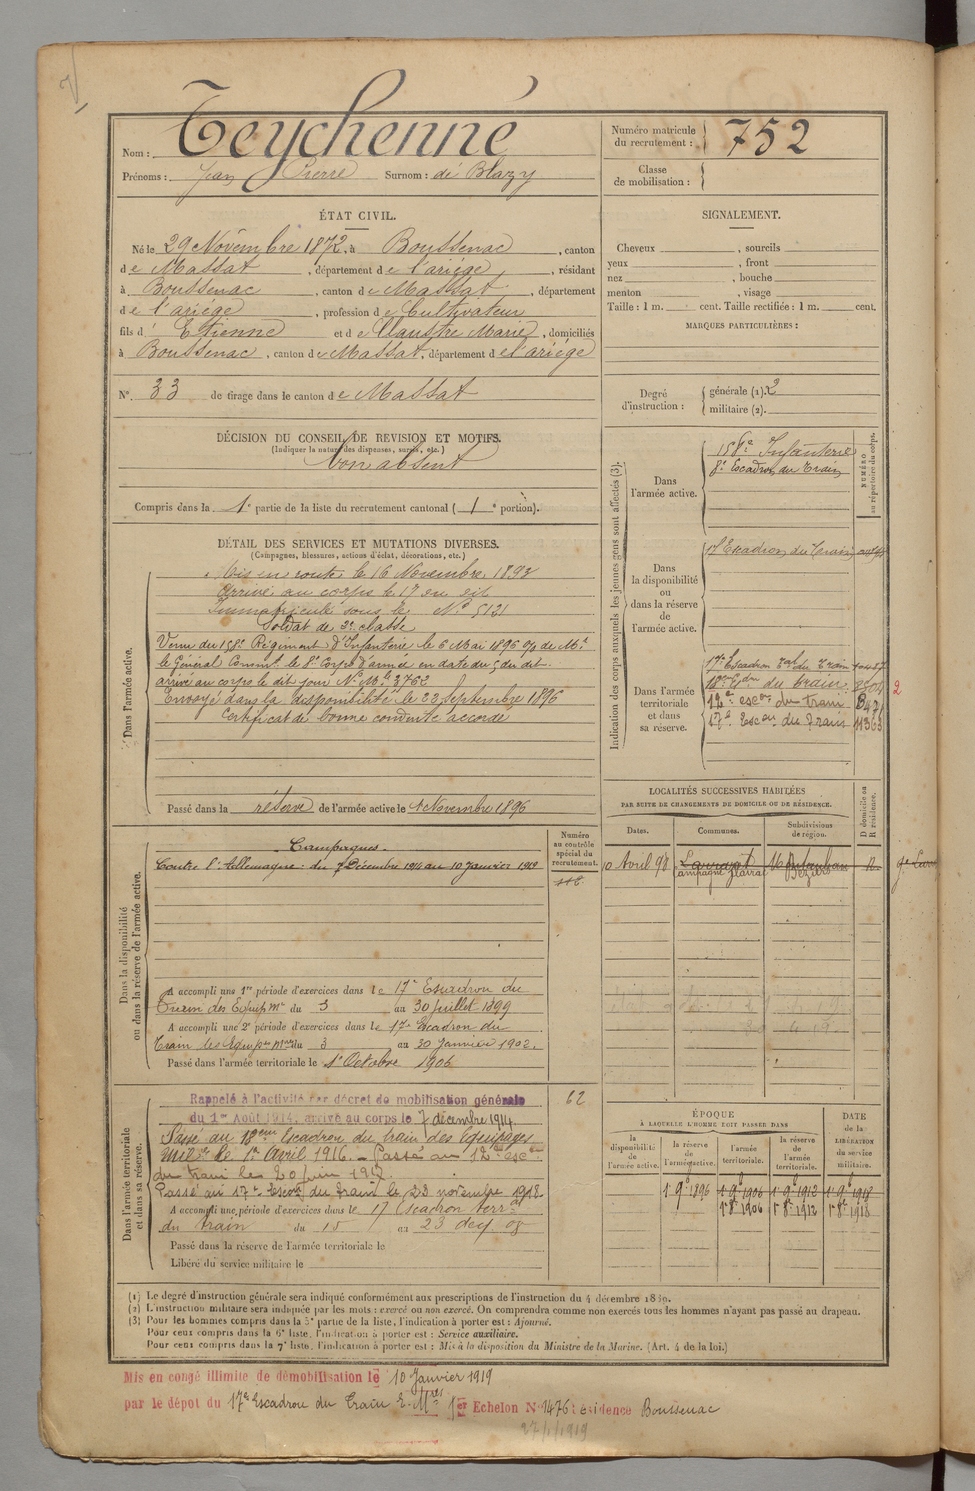 Nom : Teychenné
Prénoms : Jean Pierre Surnom : de Blazy
Numéro matricule du recrutement : 752
Classe de mobilisation :
ÉTAT CIVIL.
Né le 29 Novembre 1872, à Boussenac, canton
de Massat, département de l'ariége, résidant
à Boussenac, canton de Massat, département
de l'ariége, profession de Cultivateur
fils d' Etienne et de Claustre Marie, domiciliés
à Boussenac, canton de Massat, département de l'ariége
N° 33 de tirage dans le canton de Massat
DÉCISION DU CONSEIL DE REVISION ET MOTIFS.
(Indiquer la nature des dispenses, sursis, etc.)
bon absent
Compris dans la 1e partie de la liste du recrutement cantonal (1e portion).
DÉTAIL DES SERVICES ET MUTATIONS DIVERSES.
(Campagnes, blessures, actions d'éclat, décorations, etc.)
Dans l'armée active.
Mis en route le 16 Novembre 1893
arrivé au corps le 17 du dit
Immatriculé sous le N° 5121
Soldat de 2e classe
Venu du 158e Régiment d'Infanterie le 6 Mai 1896 de Mr
le Général Commt le 8e Corps d'armée en date du 5 du dit
arrivé au corps le dit jour N° Mle 3762
Envoyé dans la disponibilité le 23 Septembre 1896
Certificat de bonne conduite accordé
Passé dans la réserve de l'armée active le 1 Novembre 1896
Dans la disponibilité ou dans la réserve de l'armée active.
Numéro au contrôle spécial du recrutement.
Campagnes.
Contre l'Allemagne : du 7 Décembre 1914 au 10 Janvier 1919
A accompli une 1re période d'exercices dans le 17e Escadron du
Train des Equip Mres du 3 au 30 Juillet 1899
A accompli une 2e période d'exercices dans le 17e Escadron du
Train des Equip Mres du 3 au 30 Janvier 1902.
Passé dans l'armée territoriale le 1er Octobre 1906
Dans l'armée territoriale et dans sa réserve.
Rappelé à l'activité par décret de mobilisation générale
du 1er Août 1914, arrivé au corps le 7 décembre 1914.
62
Passé au 18eme Escadron du train des Equipages
Milres le 1er avril 1916. - Passé au 12e escon
du train le 20 juin 1917.
Passé au 17e Escon du Train le 23 novembre 1918.
A accompli une période d'exercices dans le 17 Escadron terral
du train du 15 au 23 dey 08
Passé dans la réserve de l'armée territoriale le
Libéré du service militaire le
SIGNALEMENT.
Cheveux , sourcils
yeux , front
nez , bouche
menton , visage
Taille : 1 m. cent. Taille rectifiée : 1 m. cent.
MARQUES PARTICULIÈRES :
Degré d'instruction :
générale (1). 2
militaire (2).
Indication des corps auxquels les jeunes gens sont affectés (3).
NUMÉRO au répertoire du corps.
Dans l'armée active.
158e Infanterie
8e Escadron du Train
Dans la disponibilité ou dans la réserve de l'armée active.
17 Escadron du Train
Dans l'armée territoriale et dans sa réserve.
17e Escadron Tal du Train
18e Edn du train
12e escon du train 8471
17e Escon du Train 11363
2
LOCALITÉS SUCCESSIVES HABITÉES
PAR SUITE DE CHANGEMENTS DE DOMICILE OU DE RÉSIDENCE.
Dates. Communes. Subdivisions de région. D domicile ou R résidence.
10 Avril 98 Montauban R
Béziers
ÉPOQUE
À LAQUELLE L'HOMME DOIT PASSER DANS
DATE de la LIBÉRATION du service militaire.
la disponibilité de l'armée active. la réserve de l'armée active. l'armée territoriale. la réserve de l'armée territoriale.
1 9b 1896 1 9b 1906 1 9b 1912 1 9b 1918
1 8b 1906 1 8b 1912 1 8b 1918
(1) Le degré d'instruction générale sera indiqué conformément aux prescriptions de l'instruction du 4 décembre 1889.
(2) L'instruction militaire sera indiquée par les mots : exercé ou non exercé. On comprendra comme non exercés tous les hommes n'ayant pas passé au drapeau.
(3) Pour les hommes compris dans la 5e partie de la liste, l'indication à porter est : Ajourné.
Pour ceux compris dans la 6e liste, l'indication à porter est : Service auxiliaire.
Pour ceux compris dans la 7e liste, l'indication à porter est : Mis à la disposition du Ministre de la Marine. (Art. 4 de la loi.)
Mis en congé illimité de démobilisation le 10 Janvier 1919
par le dépôt du 17e Escadron du Train E. Mres 1er Echelon N° 1476 résidence Boussenac
27/1/1919